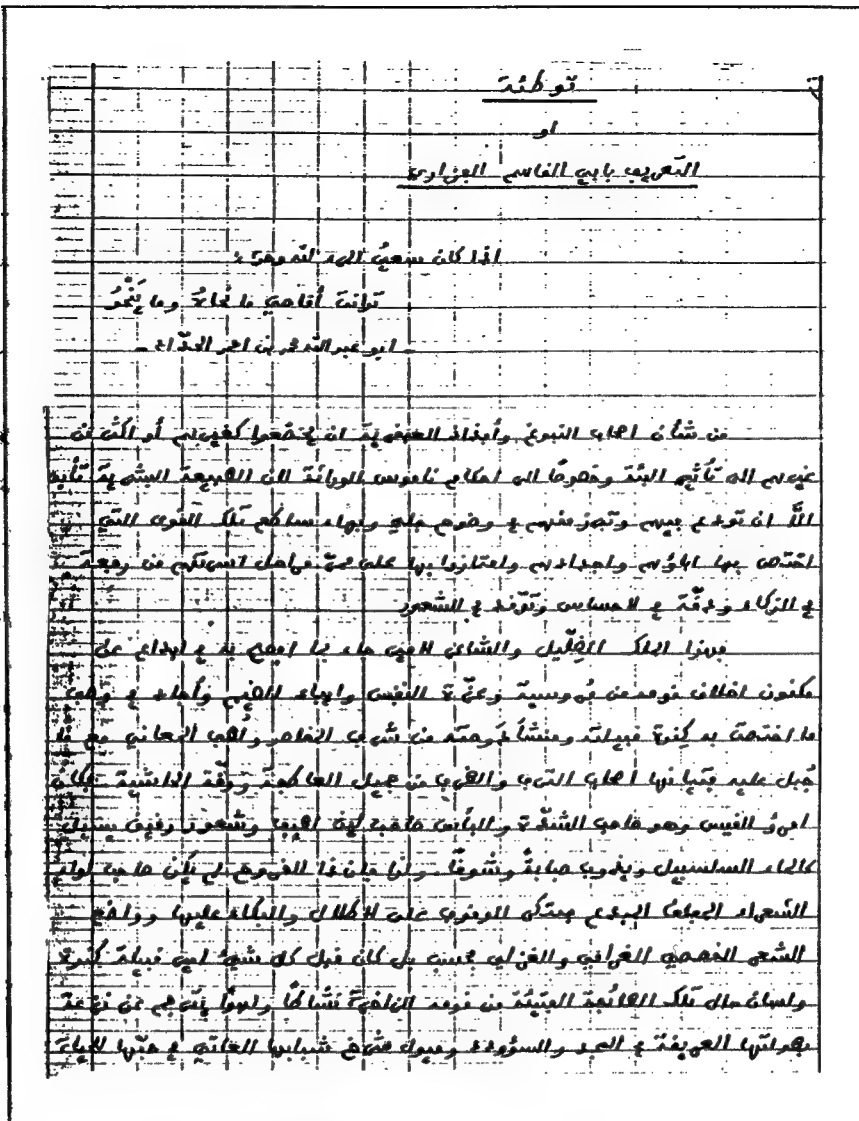 توطئة
او
التعريف بابي القاسم الفزاري
اذا كان سعي المرء لله وحده
تدانت أقاصي ما نحاه وما ينحو
- ابو عبد الله محمد بن احمد الحداد -
من شأن اصحاب النبوغ وأفذاذ العبقرية ان يخضعوا كغيرهم أو اكثر من
غيرهم الى تأثير البيئة وخصوصًا الى احكام ناموس الوراثة لان الطبيعة البشرية تأبى
الّا ان تودع فيهم وتبرز منهم في وضوح جلي وبهاء ساطع تلك القوى التي
اختص بها اباؤهم واجدادهم وامتازوا بها على مرّ مراحل من
في الذكاء ودقّة في الاحساس وتوقد في الشعور
فهذا الملك الضّلّيل والشاعر جاء بما في ابداع عن
مكنون اخلاق قومه من فروسية وعزّة النفس واباء الضيم وأجاد في وصف
ما اختصت به كندة قبيلته ومنشأ دوحته من شرف وأهب المعاني مع ما
جُبل عليه فتيانها أصحاب الترف والظرف من جميل العاطفة ورقّة الحاشية فكان
امرؤ القيس وهو صاحب الشدّة والبأس صاحب وشعور رقيق يسيل
كالماء السلسبيل ويذوب صبابةً وشوقًا ولذا فان ذا القروح لم يكن صاحب لواء
الشعراء المبدع مبتكر الوقوف على الاطلال والبكاء عليها وواضع
الشعر القصصي الغرامي والغزلي فحسب بل كان قبل كل شيء ابن قبيلة كندة
ولسان حال تلك من قومه نشاطًا ولهوًا يترجم عن نزعة
العريقة في المجد والسؤدد وميول شبابها العاتي في حبّها للحياة